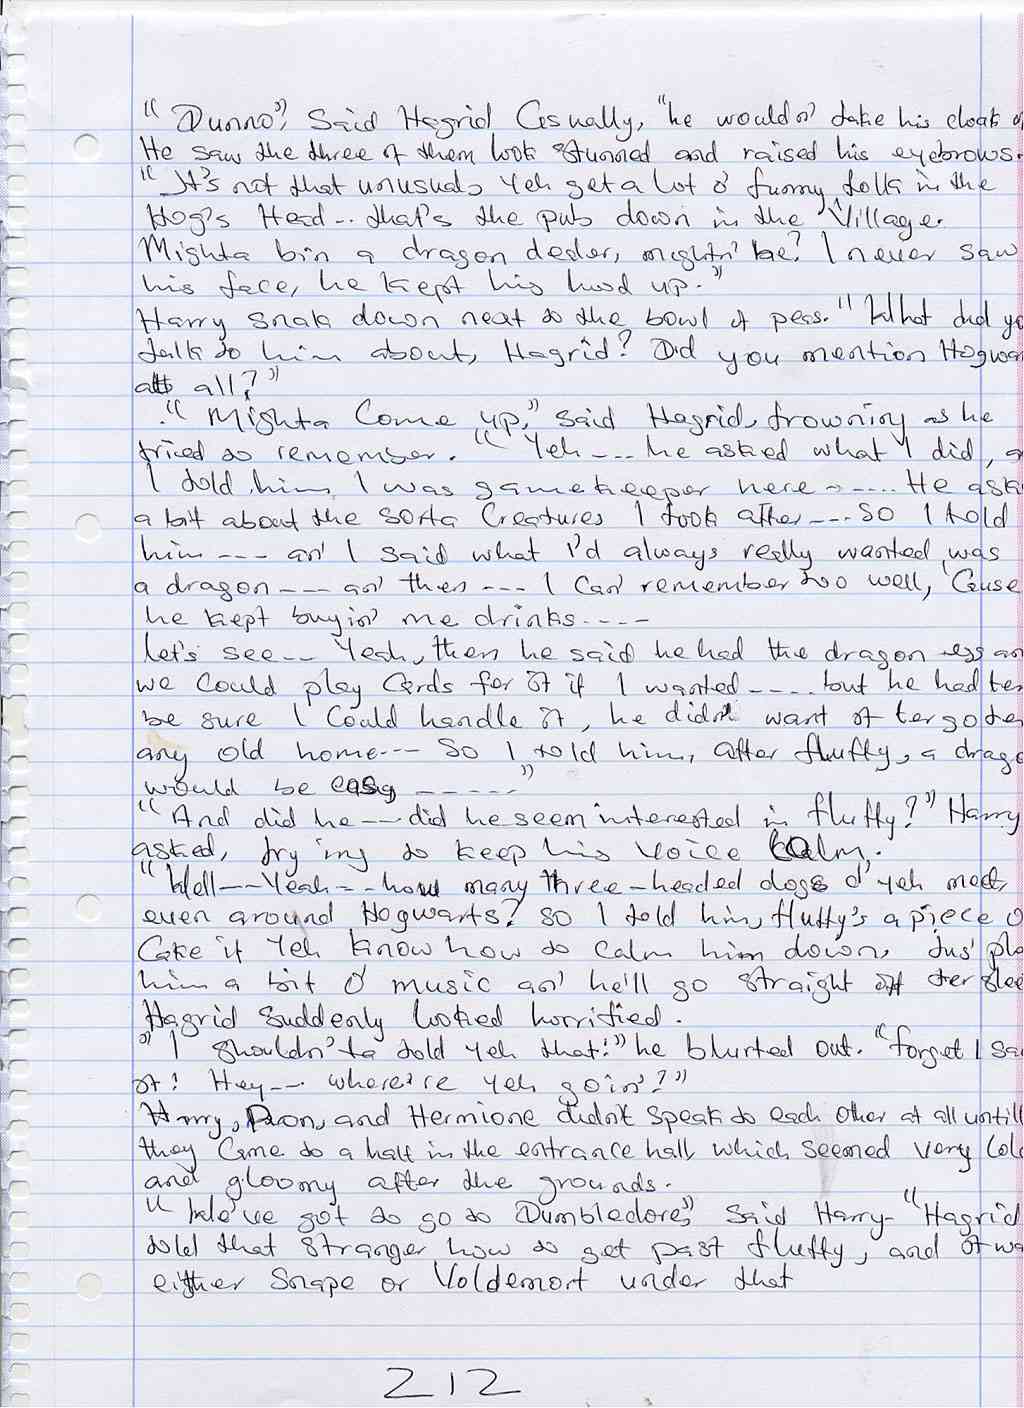 "Dunno", Said Hagrid Casually, "he wouldn' take his cloak o
He saw the three of them look stunned and raised his eyebrows.
"It's not that unusual, Yeh get a lot o' funny folk in the
Hog's Head -- that's the pub down in the Village.
Mighta bin a dragon dealer, mightn' he? I never saw
his face, he kept his hood up."
Harry snak down neat to the bowl of peas. "What did yo
talk to him about, Hagrid? Did you mention Hogwa
at all?"
"Mighta Come up," said Hagrid, frowning as he
tried to remember. "Yeh --- he asked what I did, a
I told him, I was gamekeeper here ------ He ask
a bit about the sorta Creatures I took after --- So I told
him --- an' I said what I'd always really wanted was
a dragon --- an' then --- I Can' remember too well, 'Cause
he kept buyin' me drinks ----
let's see -- Yeah, then he said he had the dragon egg an
we Could play Cards for it if I wanted ---- but he had te
be sure I Could handle it, he didn't want it ter go te
any old home --- So I told him, after fluffy, a drago
would be easy -----"
"And did he -- did he seem interested in fluffy?" Harry
asked, try ing to keep his voice Calm.
"Well -- Yeah -- how many three-headed dogs d' yeh meet,
even around Hogwarts? So I told him, fluffy's a piece o
Cake if Yeh know how to Calm him down, Jus' pla
him a bit O' music an' he'll go straight off ter slee
Hagrid Suddenly looked horrified.
"I shouldn'ta told yeh that!" he blurted out. "forget I sa
it! Hey --- where're yeh goin'?"
Harry, Ron, and Hermione didn't speak to each other at all untill
they Came to a halt in the entrance hall, which seemed very Col
and gloomy after the grounds.
"We've got to go to Dumbledore", Said Harry- "Hagrid
told that stranger how to get past fluffy, and it wa
either Snape or Voldemort under that
212